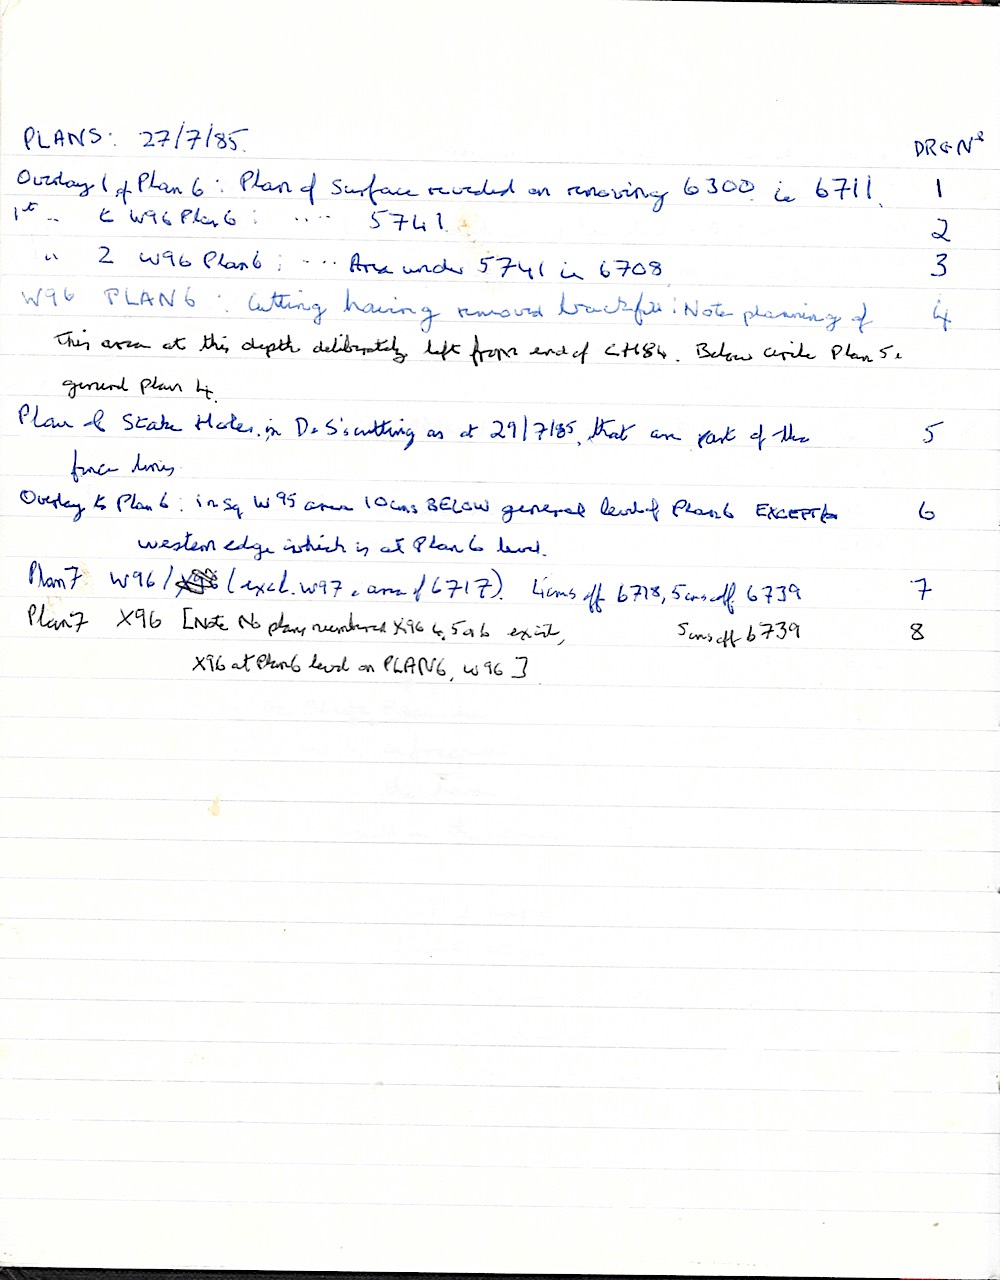 PLANS: 27/7/85. DRG Nos
Overlay 1 of Plan 6: Plan of Surface revealed on removing 6300 ie 6711. 1
1st .. to W96 Plan 6: ..... 5741. 2
" 2 W96 Plan 6; ... Area under 5741 ie 6708 3
W96 PLAN 6: Cutting having removed backfill: Note planning of 4
This area at this depth deliberately left from end of CH84. Below circle Plan 5 &
general Plan 4.
Plan of Stake Holes in D.S's cutting as at 29/7/85, that are part of the 5
fence lines
Overlay to Plan 6: in Sq W95 area 10cms BELOW general level of Plan 6 EXCEPT for 6
western edge which is at Plan 6 level.
Plan 7 W96/ (excl. W97 & area of 6717). 4cms off 6718, 5cms off 6739 7
Plan 7 X96 [Note No plans numbered X96 4, 5 or 6 exist, 5cms off 6739 8
X96 at Plan 6 level on PLAN 6, W96]